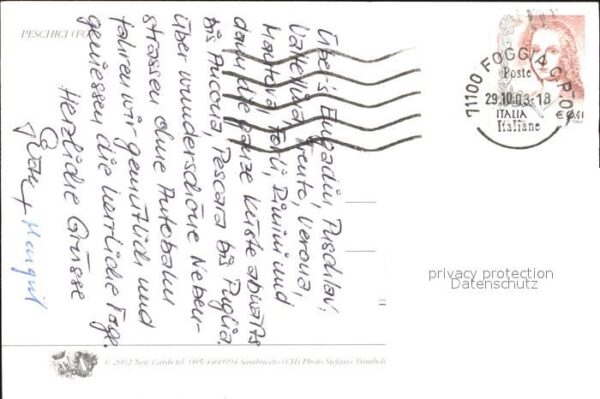 PESCHICI (FG
Über's Engadin, Puschlav,
Valtellina, Trento, Verona,
Mantova, Forli, Rimini und
dann die ganze Küste abwärts
bis Ancona, Pescara bis Puglia.
Über wunderschöne Neben-
strassen ohne Autobahn
fahren wir gemütlich und
geniessen die herrliche Tage.
Herzliche Grüsse
71100 FOGGIA C.P.O.
Poste
29.10.03-18
ITALIA
Italiane
€ 0,41
privacy protection
Datenschutz
© 2002 New Cards tel. 085 4460994 Sambuceto (CH) Photo Stefano Trimboli